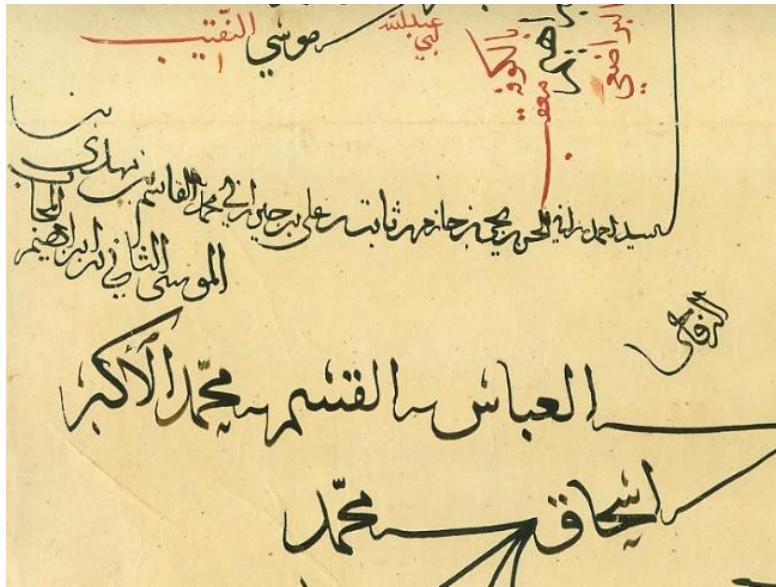 موسي النقيب
عبدالله
بالكوفة
سيد احمد بن ابي الحسن يحيى بن حازم بن ثابت بن علي بن حسين بن ابي محمد القاسم بن مهدي بن
الموسى الثاني بن ابراهيم
الرفاعي
العباس القسم محمد الاكبر
اسحاق محمد